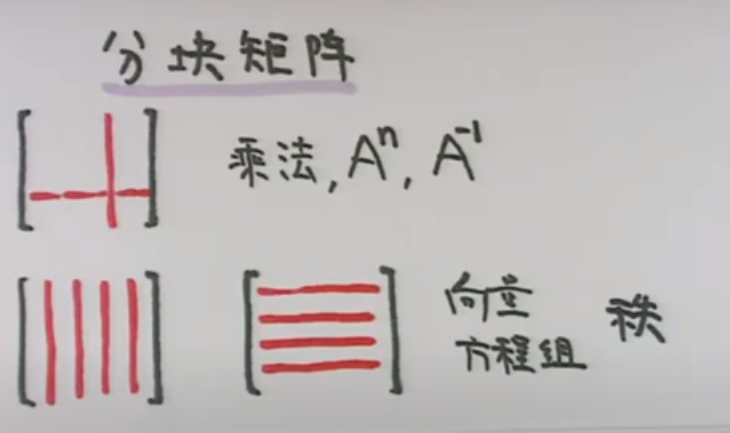 分块矩阵
乘法, Aⁿ, A⁻¹
向量
方程组 秩